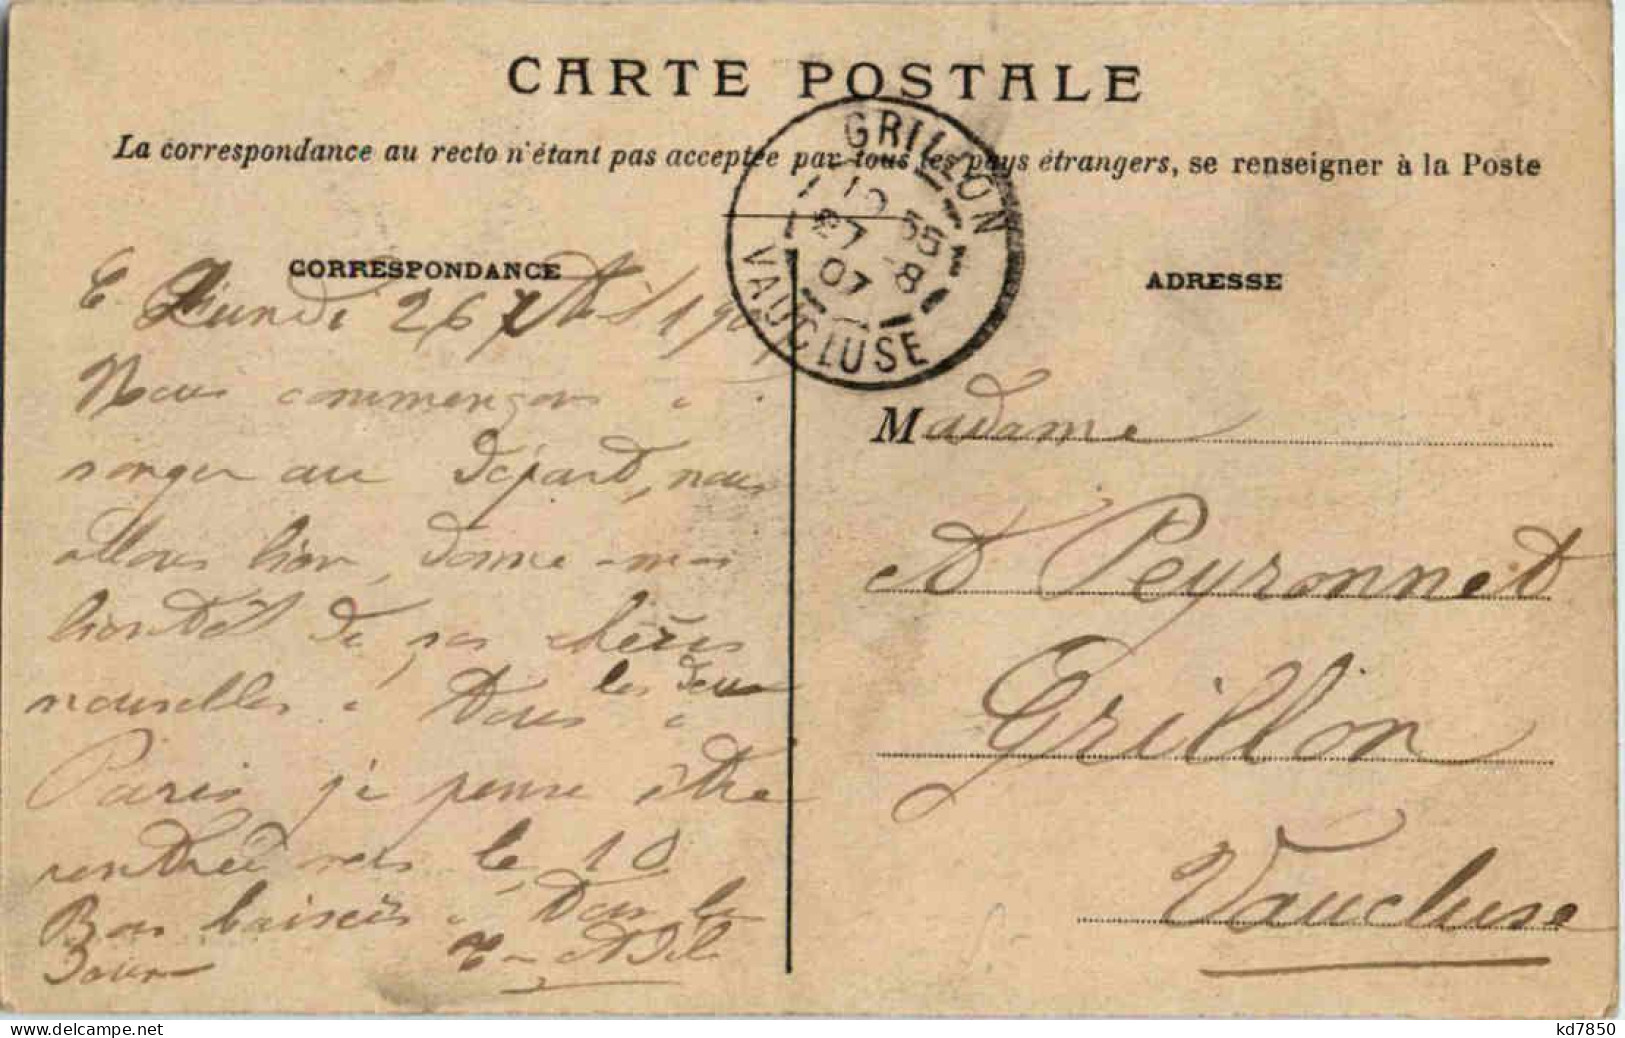 CARTE POSTALE
La correspondance au recto n'étant pas acceptée par tous les pays étrangers, se renseigner à la Poste
GRILLON
10 55
27 -8
07
VAUCLUSE
CORRESPONDANCE
Lundi 26
Nous commençons à
songer au départ, nous
allons bien, donne-moi
bientôt de ses chères
nouvelles à tous les deux à
Paris je pense être
rentrée vers le 10
Bons baisers à tous les
2
ADRESSE
Madame
A Peyronnet
Grillon
Vaucluse
kd7850